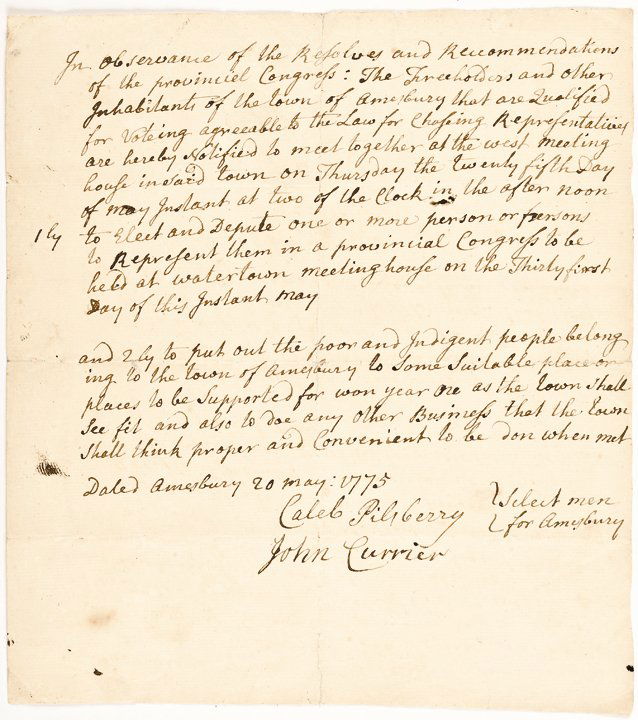 In observance of the Resolves and Recommendations
of the provinciel Congress: The Freeholders and other
Inhabitants of the town of Amesbury that are Qualified
for Voteing agreeable to the Law for Chosing Representatives
are hereby Notified to meet together at the west meeting
house in said town on Thursday the twenty fifth Day
of may Instant at two of the Clock in the after noon
1ly to Elect and Depute one or more person or persons
to Represent them in a provincial Congress to be
held at watertown meeting house on the Thirty first
Day of this Instant may
and 2ly to put out the poor and Indigent people belong
ing to the town of Amesbury to Some Suitable place or
places to be Supported for won year ore as the town Shall
See fit and also to doe any other Business that the town
Shall think proper and Convenient to be don when met
Dated Amesbury 20 may: 1775
Caleb Pilsberry
John Currier
Select men
for Amesbury